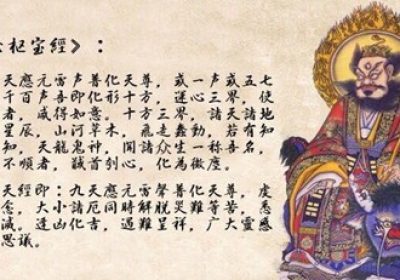 枢宝經》:
天應元雷声普化天尊,或一声或五七
千百声吾即化形十方,运心三界,使
者,咸得如意。十方三界,諸天諸地
星辰,山河草木,飛走蠢動,若有知
知,天龍鬼神,聞諸众生一称吾名,
不順者,馘首刳心,化為微塵。
天经即:九天應元雷聲普化天尊,虔
念,大小諸厄同時解脱災難等苦,悉
滅。逢凶化吉,遇難呈祥,广大靈感
思議。